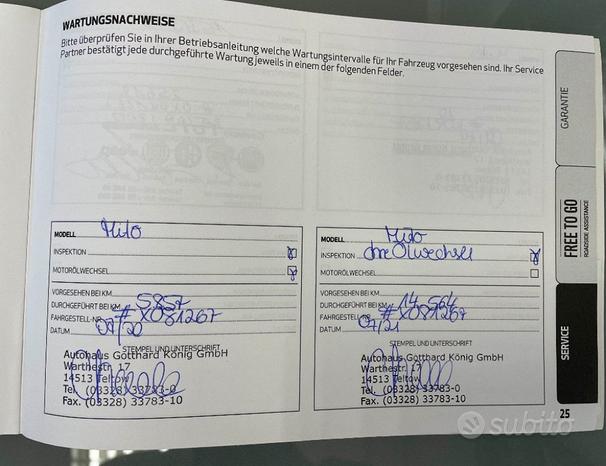 WARTUNGSNACHWEISE
Bitte überprüfen Sie in Ihrer Betriebsanleitung welche Wartungsintervalle für Ihr Fahrzeug vorgesehen sind. Ihr Service
Partner bestätigt jede durchgeführte Wartung jeweils in einem der folgenden Felder.
MODELL Mito
INSPEKTION
MOTORÖLWECHSEL
VORGESEHEN BEI KM
DURCHGEFÜHRT BEI KM 5857
FAHRGESTELL-NR. #X081267
DATUM 07/20
STEMPEL UND UNTERSCHRIFT
Autohaus Gotthard König GmbH
Warthestr. 17
14513 Teltow
Tel. (03328) 33783-0
Fax. (03328) 33783-10
MODELL Mito
INSPEKTION ohne Ölwechsel
MOTORÖLWECHSEL
VORGESEHEN BEI KM
DURCHGEFÜHRT BEI KM 14 564
FAHRGESTELL-NR. #X081267
DATUM 07/21
STEMPEL UND UNTERSCHRIFT
Autohaus Gotthard König GmbH
Warthestr. 17
14513 Teltow
Tel. (03328) 33783-0
Fax. (03328) 33783-10
GARANTIE
FREE TO GO
ROADSIDE ASSISTANCE
SERVICE
25
subito